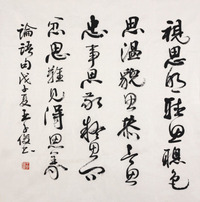 視思明聽思聰色
思溫貌思恭言思
忠事思敬疑思问
忿思難見得思義
論語句戊子夏王子书